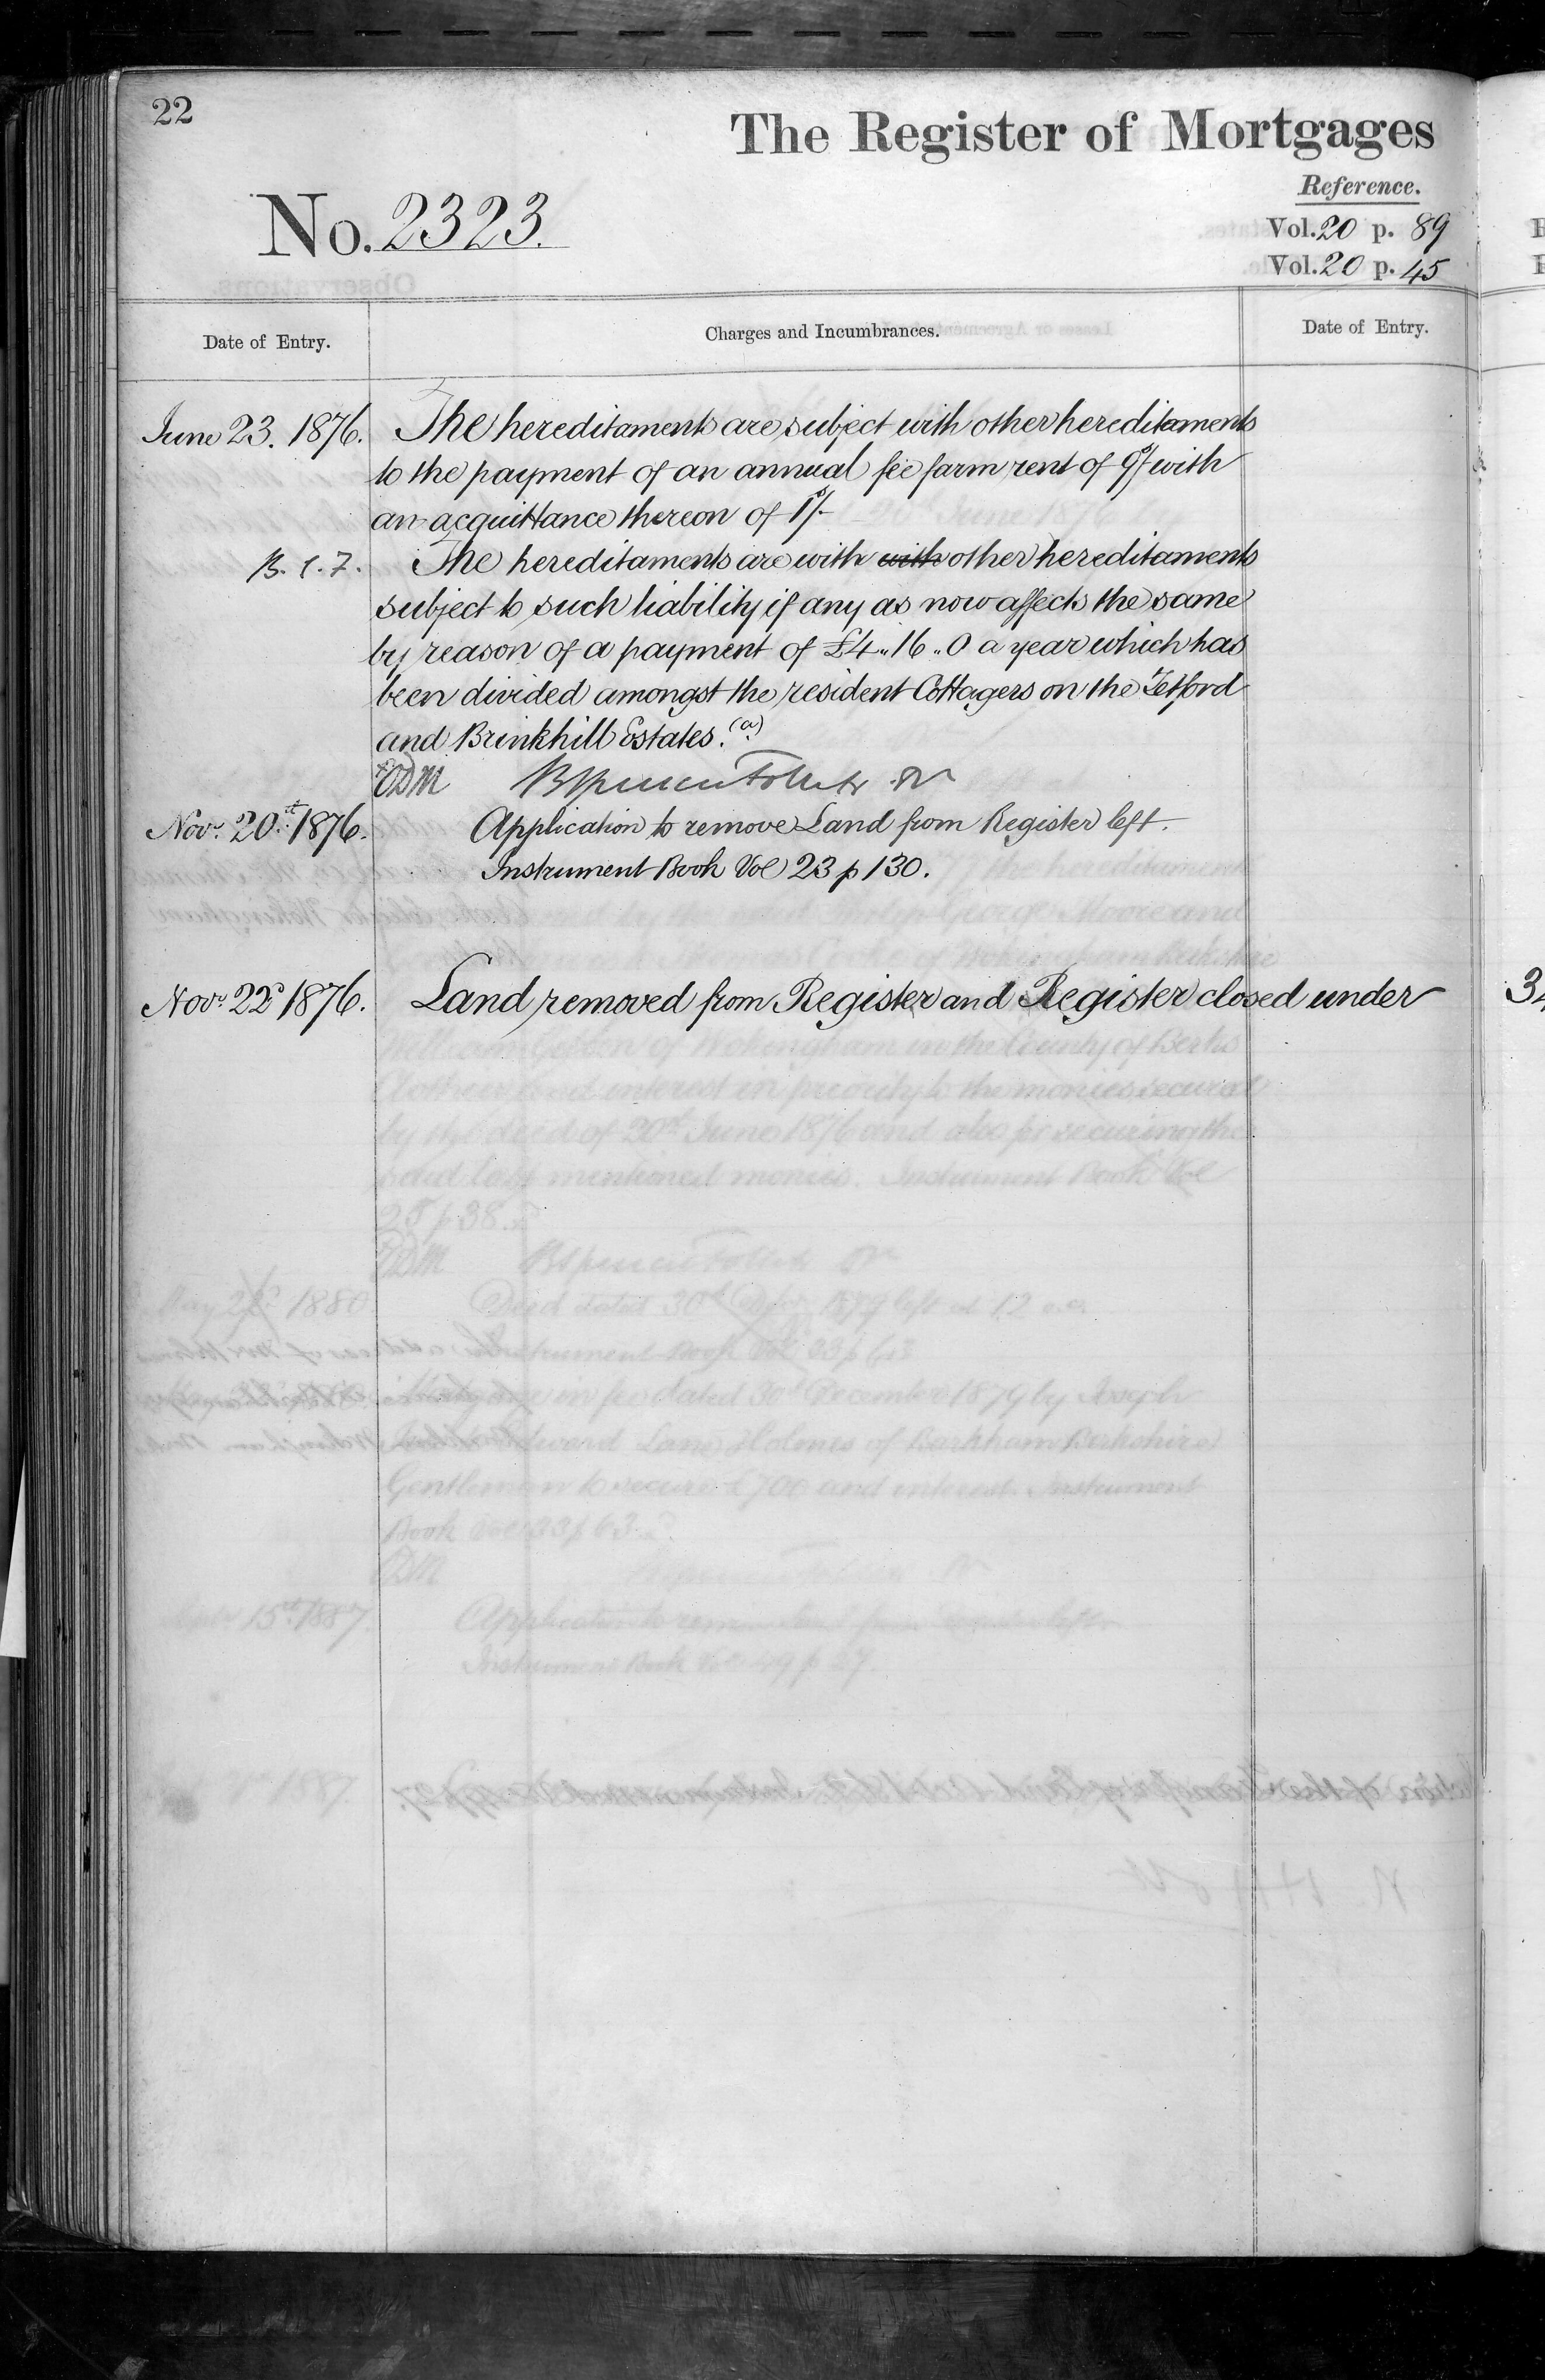 22
The Register of Mortgages
Reference.
No. 2323.
Vol. 20 p. 89
Vol. 20 p. 45
Date of Entry.
Charges and Incumbrances.
Date of Entry.
June 23. 1876. The hereditaments are subject with other hereditaments
to the payment of an annual fee farm rent of 9s/ with
an acquittance thereon of 1s/-
B. 1. 7. The hereditaments are with with other hereditaments
subject to such liability if any as now affects the same
by reason of a payment of £4..16..0 a year which has
been divided amongst the resident Cottagers on the Tetford
and Brinkhill Estates. (a)
Nov. 20th 1876. Application to remove Land from Register left.
Instrument Book Vol 23 p 130.
Nov. 22d 1876. Land removed from Register and Register closed under